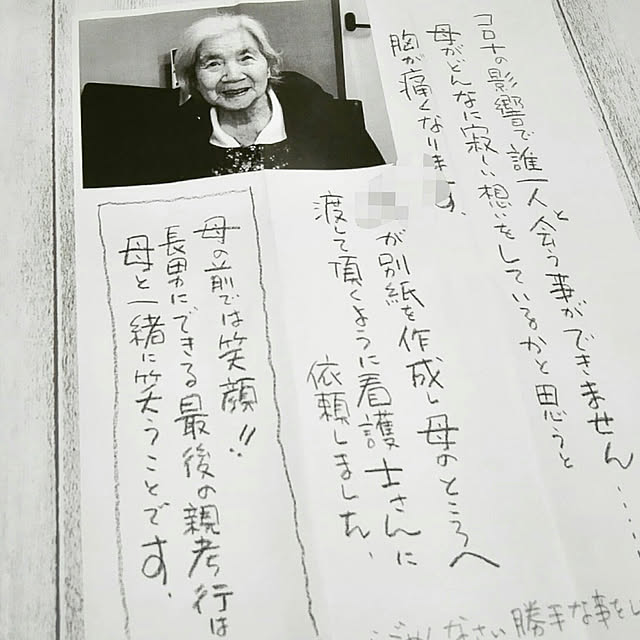 コロナの影響で誰一人と会う事ができません……
母がどんなに寂しい想いをしているかと思うと
胸が痛くなります、
が別紙を作成し母のところへ
渡して頂くように看護士さんに
依頼しました、
母の前では笑顔!!
長男にできる最後の親考行は
母と一緒に笑うことです、
ごめんなさい勝手な事をし